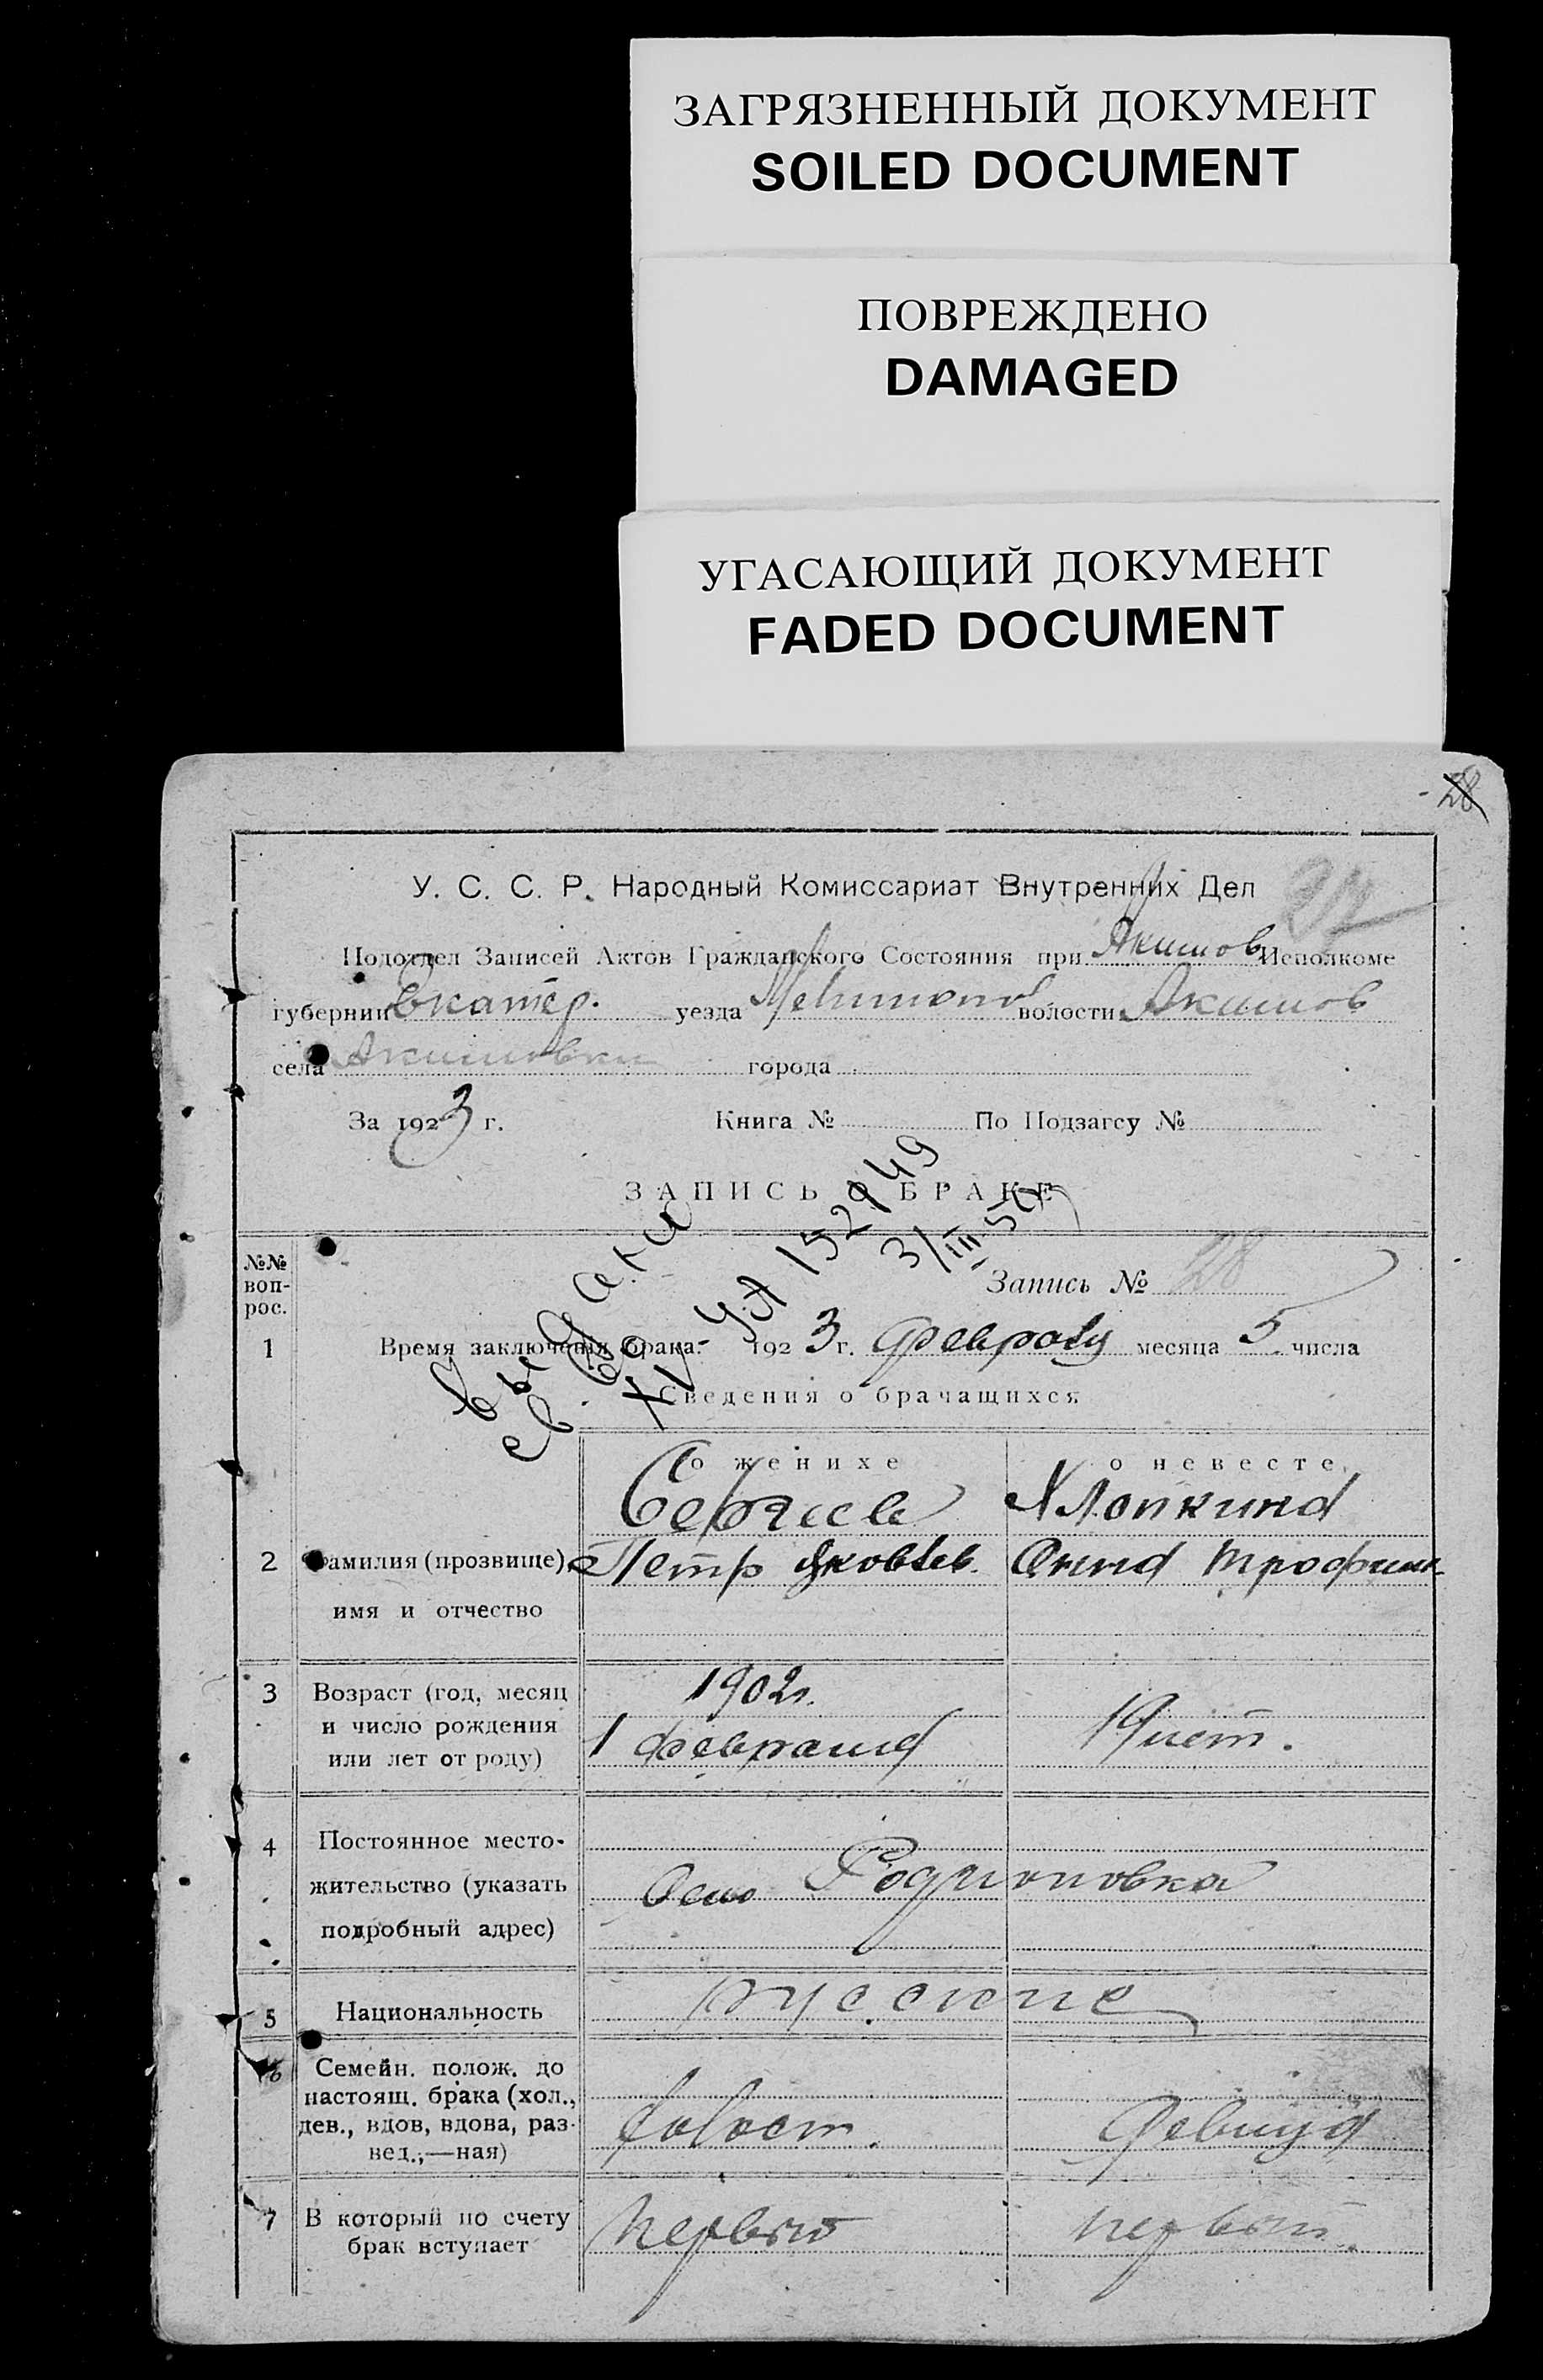 ЗАГРЯЗНЕННЫЙ ДОКУМЕНТ
SOILED DOCUMENT
ПОВРЕЖДЕНО
DAMAGED
УГАСАЮЩИЙ ДОКУМЕНТ
FADED DOCUMENT
28
У. С. С. Р. Народный Комиссариат Внутренних Дел
Подотдел Записей Актов Гражданского Состояния при Акимов Исполкоме
губернии Екатер. уезда волости Акимов
села Акимовки города
За 1923 г. Книга № По Подзагсу №
ЗАПИСЬ О БРАКЕ
№№ воп-
рос.
Запись № 28
1 Время заключения брака: 1923 г. месяца 5 числа
Сведения о брачащихся
выдан
св во
УА 152149
3/III-57
о женихе о невесте
Хлопкина
2 Фамилия (прозвище), Петр Яковлев. Анна Трофим
имя и отчество
3 Возраст (год, месяц 1902г.
и число рождения 1 февраля 19 лет.
или лет от роду)
4 Постоянное место-
жительство (указать Село Родионовка
подробный адрес)
5 Национальность русские
6 Семейн. полож. до
настоящ. брака (хол.,
дев., вдов, вдова, раз- холост. девица
вед.,—ная)
7 В который по счету первый первый
брак вступает